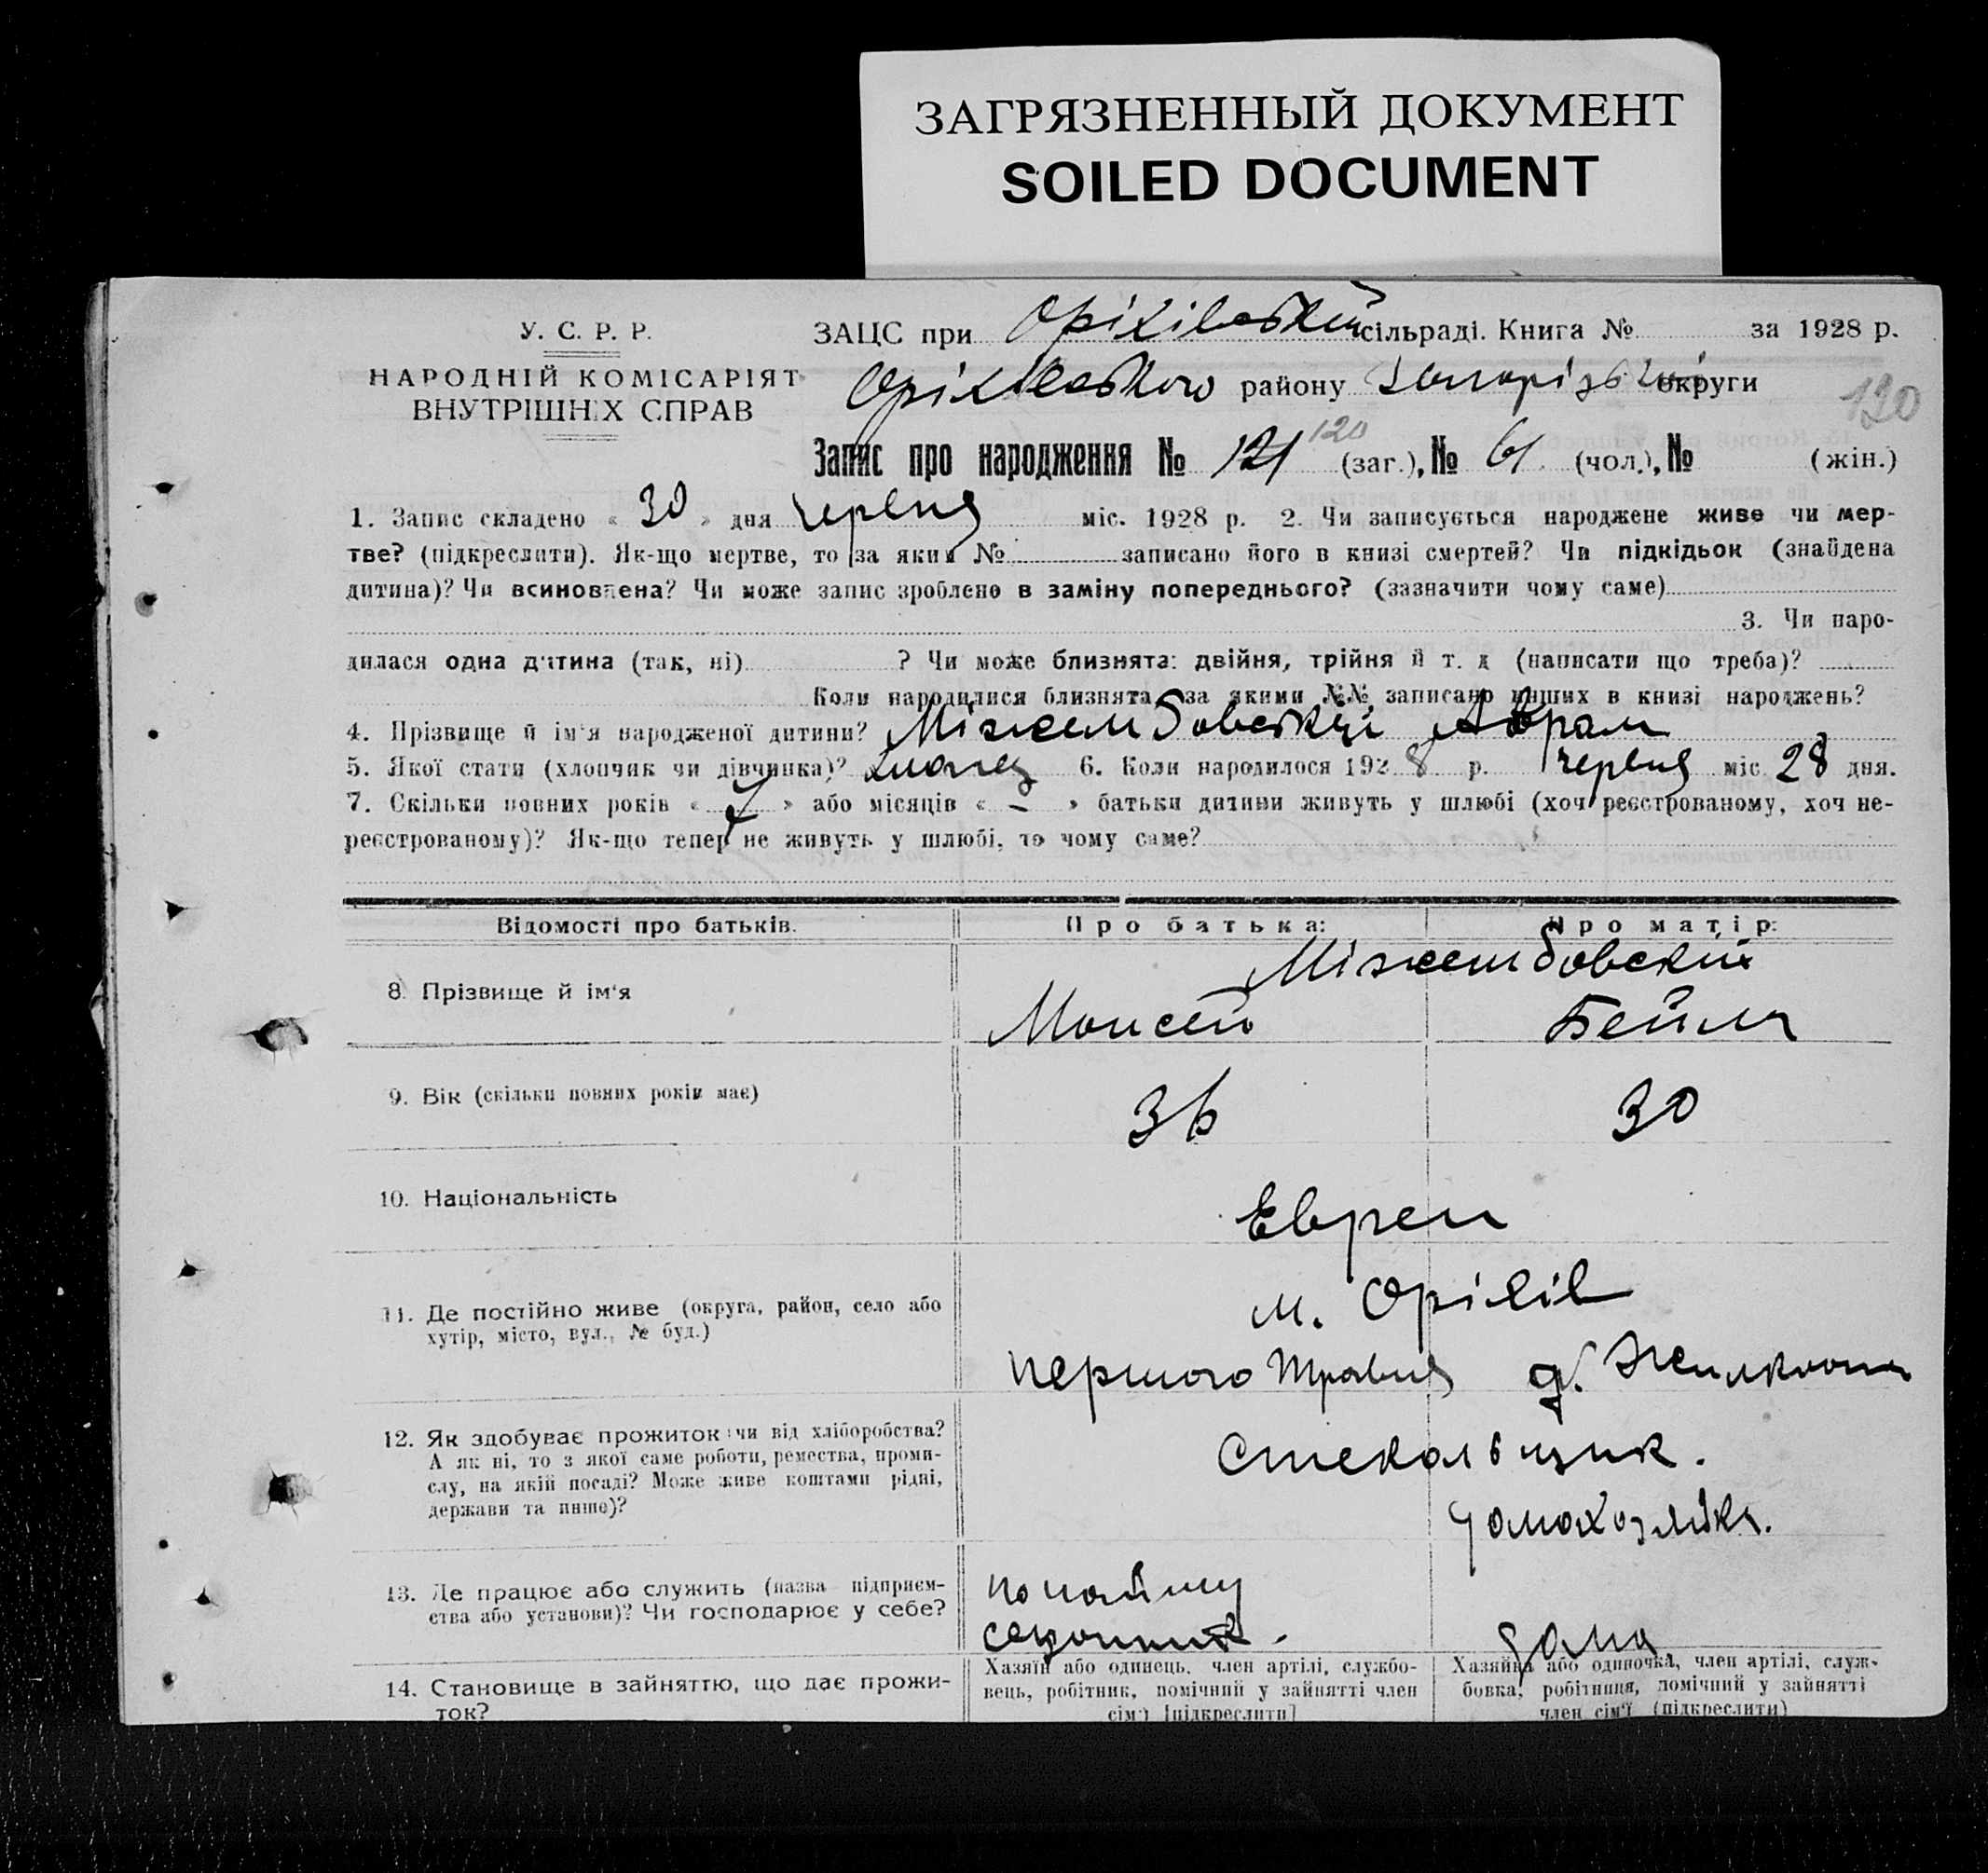 ЗАГРЯЗНЕННЫЙ ДОКУМЕНТ
SOILED DOCUMENT
У. С. Р. Р.
НАРОДНІЙ КОМІСАРІЯТ
ВНУТРІШНІХ СПРАВ
ЗАЦС при Оріхівській сільраді. Книга № за 1928 р.
Оріхівского району Запорізької округи
130
Запис про народження № 121 120 (заг.), № 61 (чол.), № (жін.)
1. Запис складено « 30 » дня червня міс. 1928 р. 2. Чи записується народжене живе чи мер-
тве? (підкреслити). Як-що мертве, то за яким № записано його в книзі смертей? Чи підкідьок (знайдена
дитина)? Чи всиновлена? Чи може запис зроблено в заміну попереднього? (зазначити чому саме)
3. Чи наро-
дилася одна дитина (так, ні) ? Чи може близнята: двійня, трійня й т. д (написати що треба)?
Коли народилися близнята, за якими №№ записано инших в книзі народжень?
4. Прізвище й ім'я народженої дитини? Міжембовский Абрам
5. Якої стати (хлопчик чи дівчинка)? хлопец 6. Коли народилося 1928 р. червня міс. 28 дня.
7. Скільки повних років « 7 » або місяців « – » батьки дитини живуть у шлюбі (хоч реєстрованому, хоч не-
реєстрованому)? Як-що тепер не живуть у шлюбі, то чому саме?
Відомості про батьків. Про батька: Про матір:
Міжембовский
8. Прізвище й ім'я Моисей Бейля
9. Вік (скільки повних років має) 36 30
10. Національність Евреи
11. Де постійно живе (округа, район, село або
хутір, місто, вул., № буд.)
м. Оріхів
першого Травня д.
12. Як здобуває прожиток: чи від хліборобства?
А як ні, то з якої саме роботи, ремества, проми-
слу, на якій посаді? Може живе коштами рідні,
держави та инше)?
Стекольщик.
домохозяйка.
13. Де працює або служить (назва підприєм-
ства або установи)? Чи господарює у себе?
по найму
сезонник.
дома
14. Становище в зайняттю, що дає прожи-
ток?
Хазяїн або одинець, член артілі, службо-
вець, робітник, помічний у зайнятті член
сім'ї [підкреслити]
Хазяйка або одиночка, член артілі, служ-
бовка, робітниця, помічний у зайнятті
член сім'ї (підкреслити)